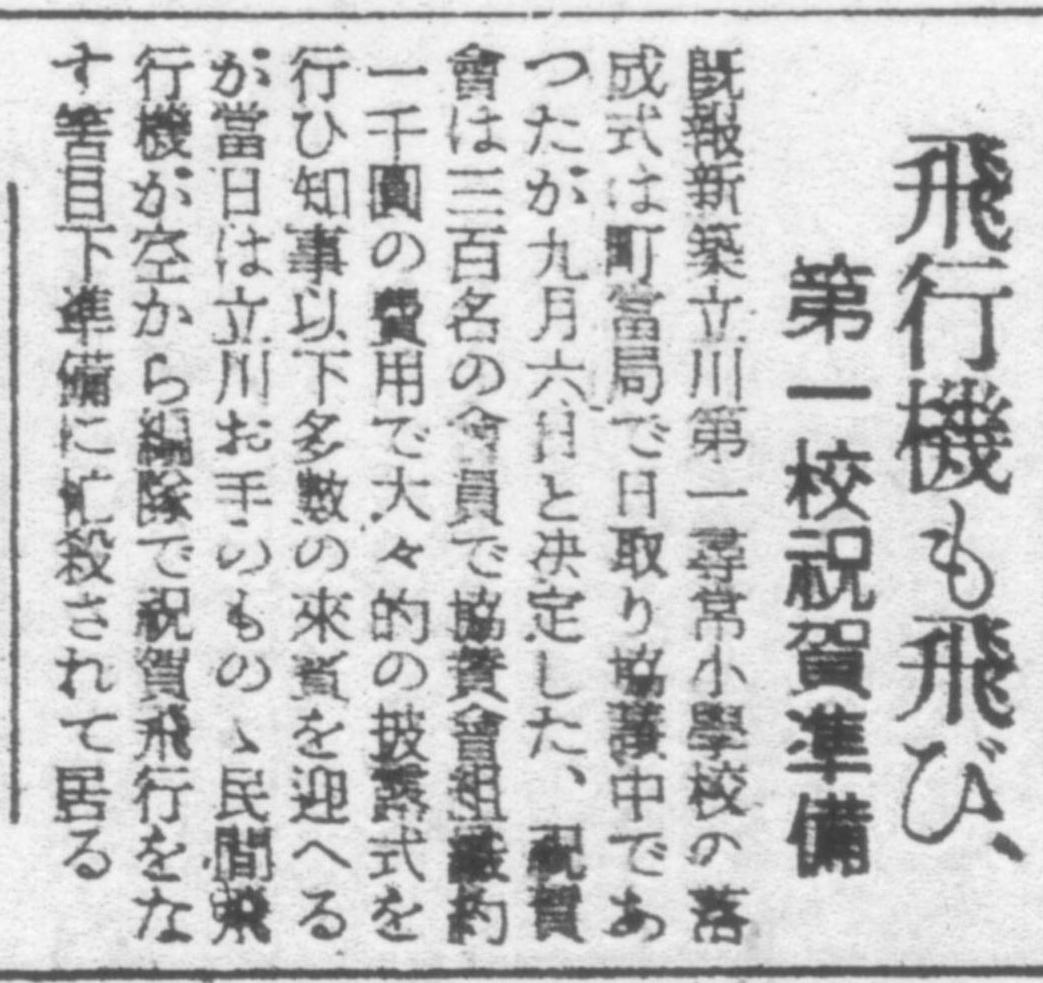 飛行機も飛び、
第一校祝賀準備
既報新築立川第一尋常小學校の落
成式は町當局で日取り協議中であ
つたが九月六日と決定した、祝賀
會は三百名の會員で協賛會組織約
一千圓の費用で大々的の披露式を
行ひ知事以下多數の來賓を迎へる
が當日は立川お手のものゝ民間飛
行機が空から編隊で祝賀飛行をな
す筈目下準備に忙殺されて居る